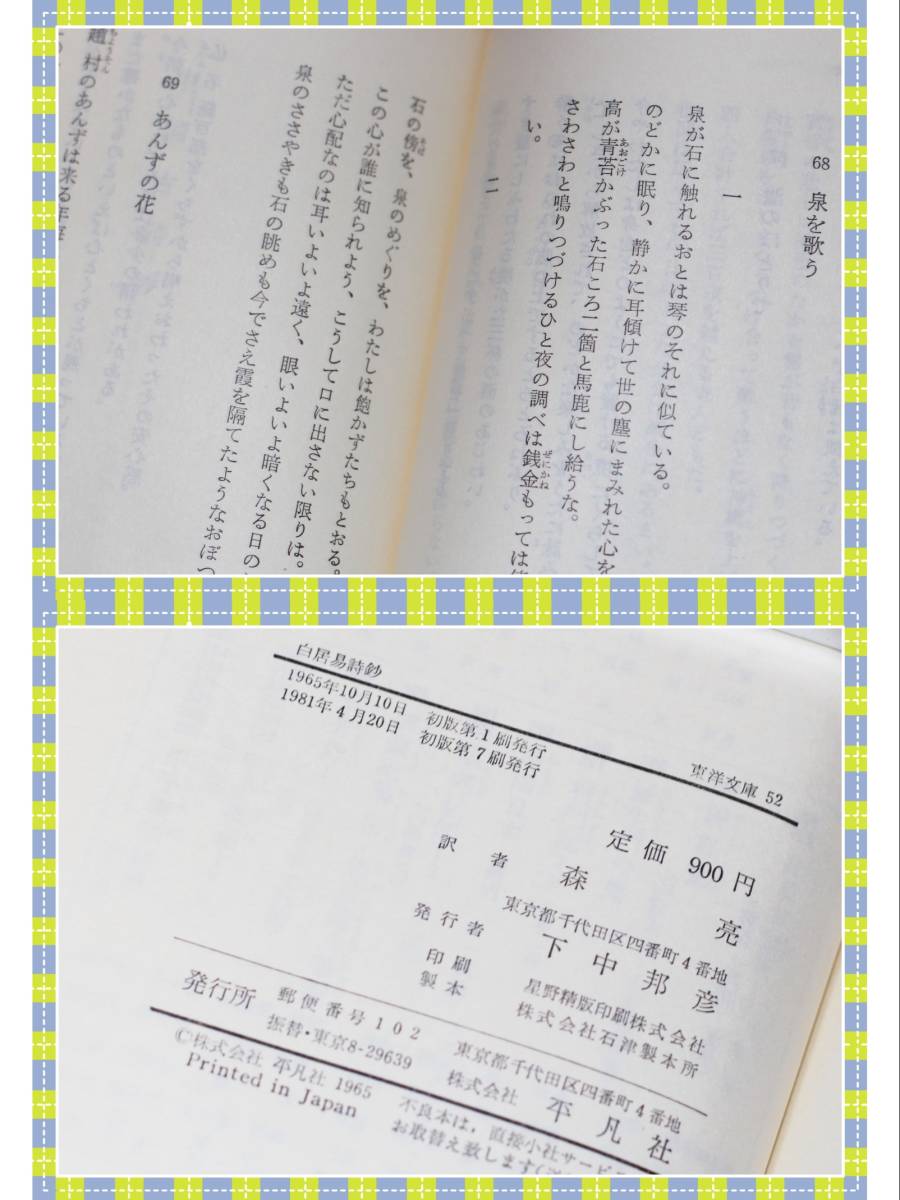 68 泉を歌う
一
泉が石に触れるおとは琴のそれに似ている。
のどかに眠り、静かに耳傾けて世の塵にまみれた心を
高が青苔かぶった石ころ二箇と馬鹿にし給うな。
あおごけ
さわさわと鳴りつづけるひと夜の調べは銭金もっては
ぜにかね
い。
二
石の傍を、泉のめぐりを、わたしは飽かずたちもとおる。
そば
この心が誰に知られよう、こうして口に出さない限りは。
ただ心配なのは耳いよいよ遠く、眼いよいよ暗くなる日の
泉のささやきも石の眺めも今でさえ霞を隔てたようなおぼつ
69 あんずの花
趙村のあんずは来る年
白居易詩鈔
1965年10月10日 初版第1刷発行
1981年4月20日 初版第7刷発行
東洋文庫 52
定価 900円
訳者 森 亮
東京都千代田区四番町4番地
発行者 下中邦彦
印刷 星野精版印刷株式会社
製本 株式会社石津製本所
発行所 郵便番号102 東京都千代田区四番町4番地
振替・東京8-29639 株式会社 平凡社
©株式会社 平凡社 1965
Printed in Japan
不良本は、直接小社サービス
お取替え致します